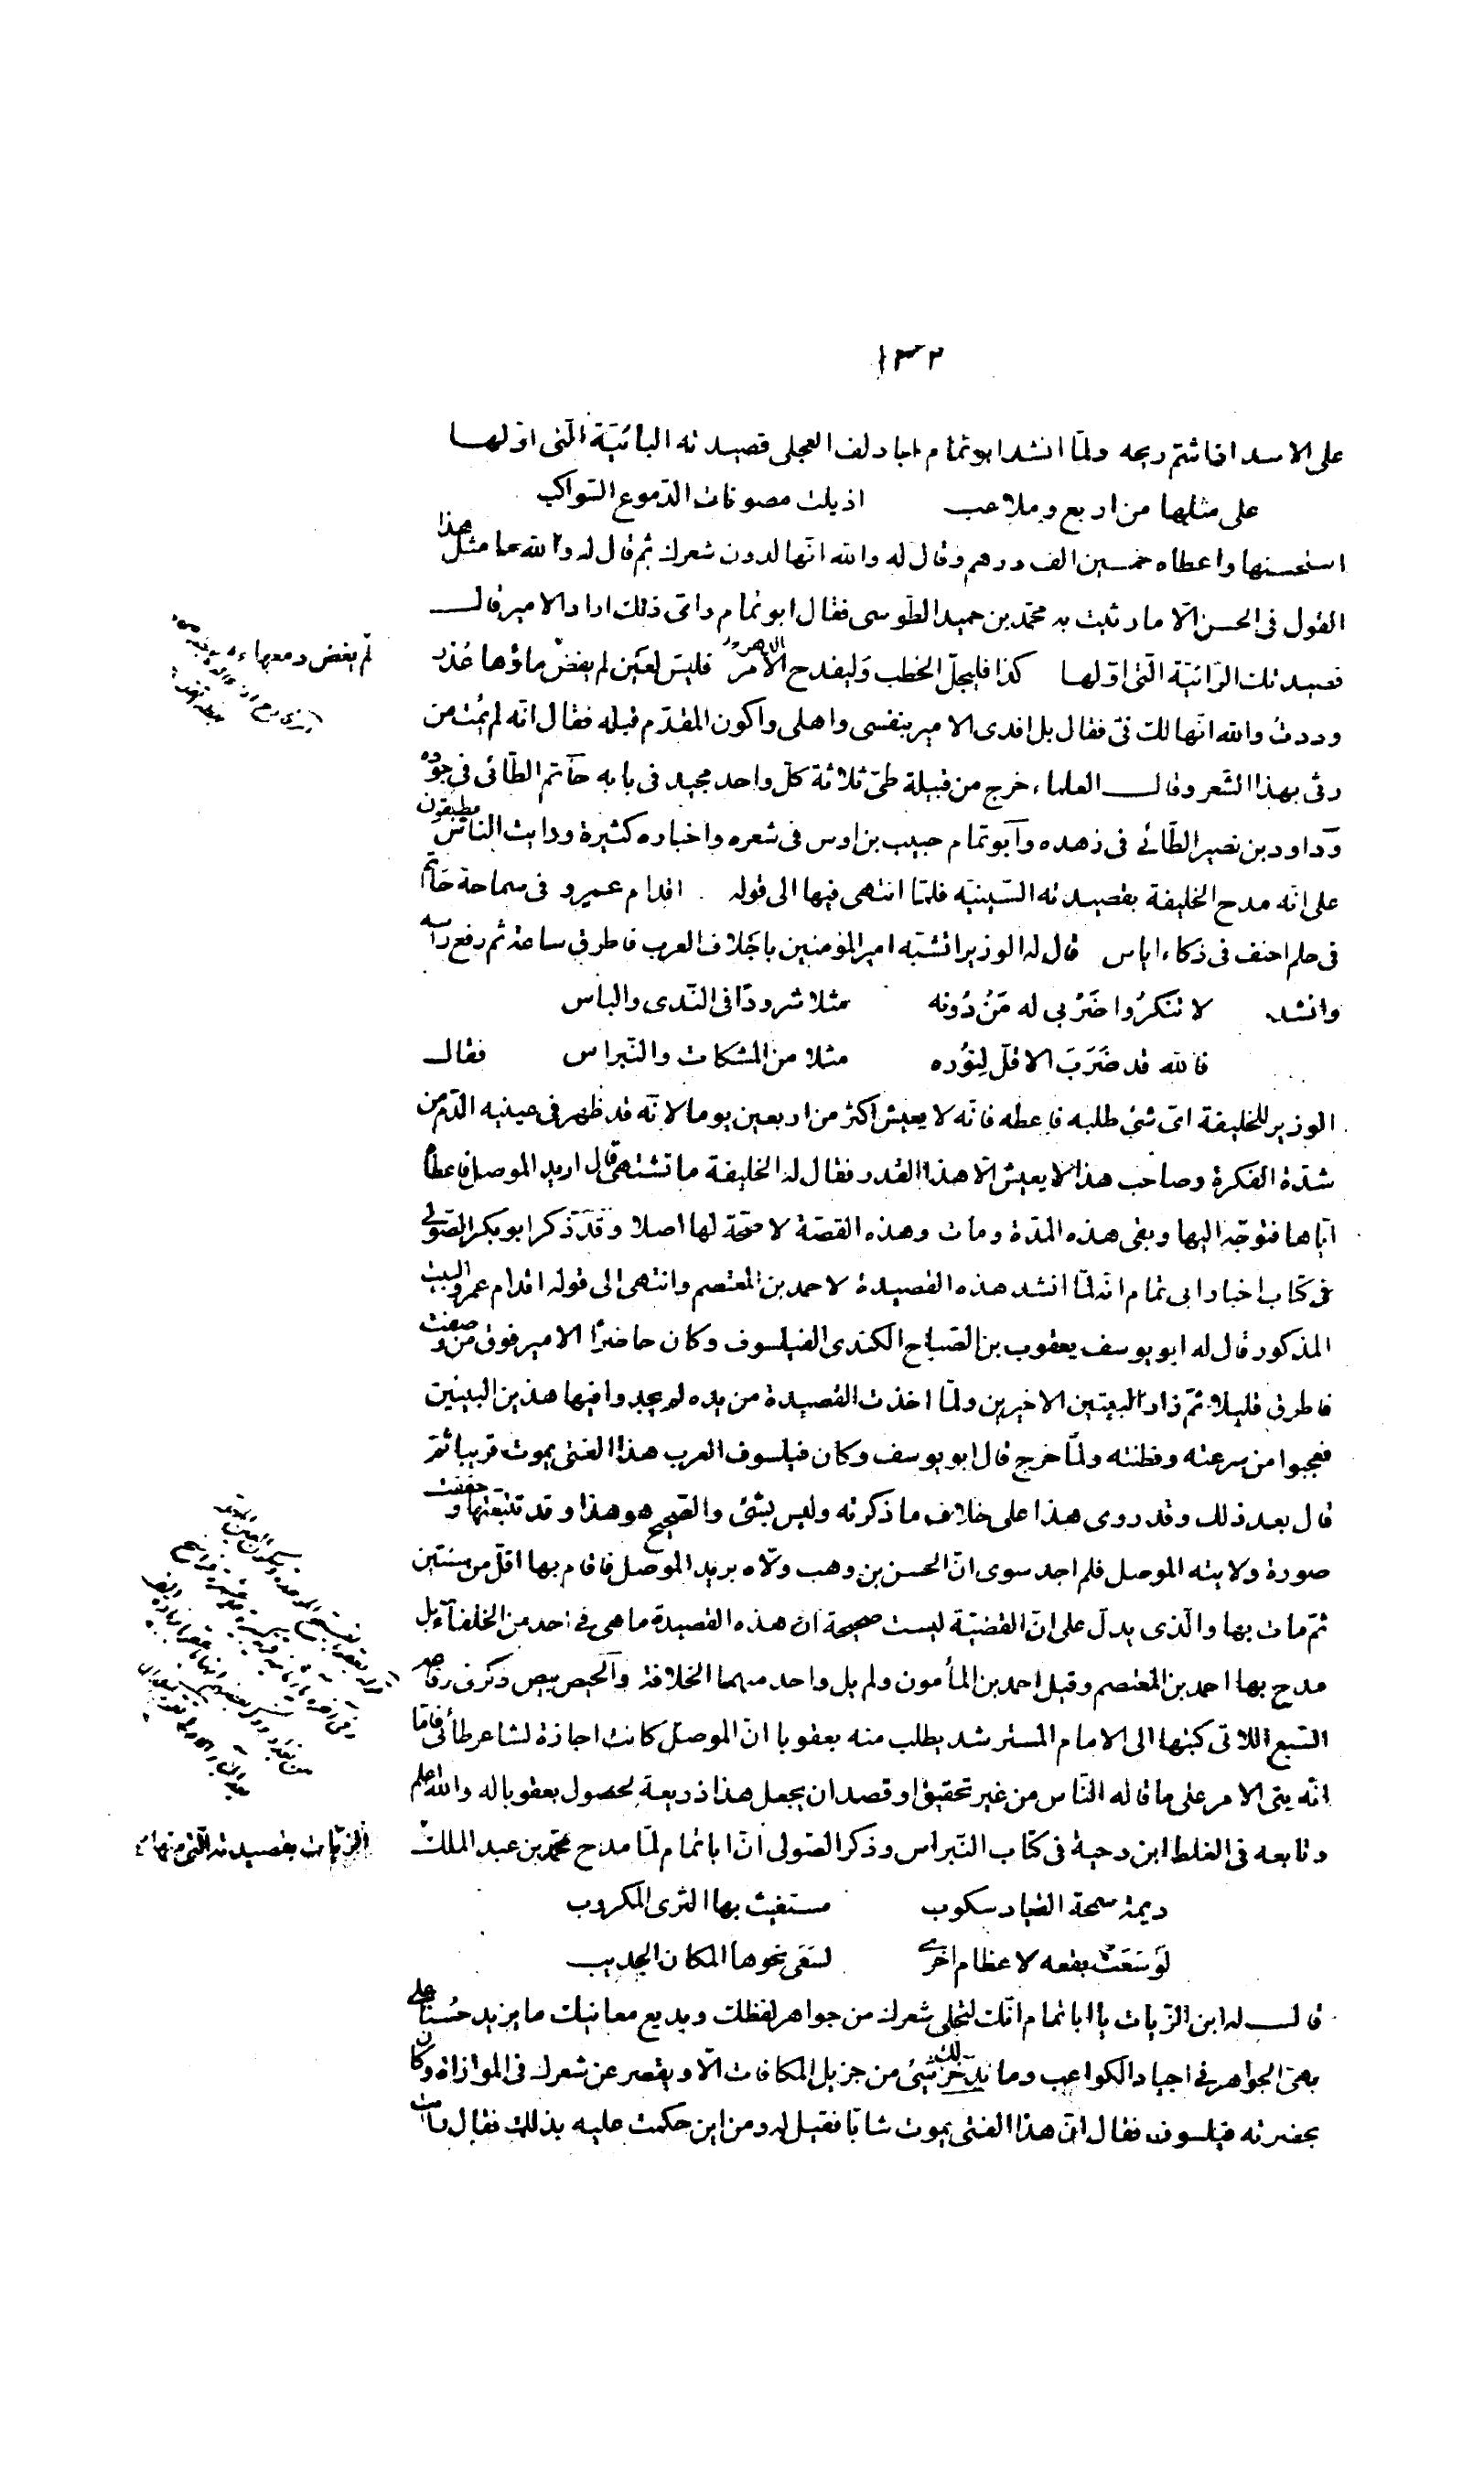 ١٣٢
على الاسد اذا شتم ريحه ولمّا انشد ابو تمّام ابا دلف العجلى قصيدته البائيّة الّتى اوّلها
على مثلها من اربع وملاعب اذيلت مصونات الدّموع السّواكب
استحسنها واعطاه خمسين الف درهم وقال له والله انّها لدون شعرك ثم قال له والله ما مثل هذا
القول فى الحسن الّا ما رثيت به محمّد بن حميد الطّوسى فقال ابو تمام واىّ ذلك اراد الامير قال
قصيدتك الرّائيّة الّتى اوّلها كذا فليجلّ الخطب وليفدح الامر الدهر فليس لعين لم يفض ماؤها عُذر
وددتُ والله انّها لك فىّ فقال بل افدى الامير بنفسى واهلى واكون المقدّم قبله فقال انّه لم يمُت من
رثى بهذا الشّعر وقال العلماء خرج من قبيلة طىّ ثلاثة كلّ واحد مجيد فى بابه حاتم الطّائى فى جوده
وداود بن نصير الطّائى فى زهده وابو تمام حبيب بن اوس فى شعره واخباره كثيرة ورايت النّاس مطبقون
على انّه مدح الخليفة بقصيدته السّينيّه فلمّا انتهى فيها الى قوله اقدام عمرو فى سماحة حاتم
فى حلم احنف فى ذكاء اياس قال له الوزير اتشبّه امير المؤمنين باجلاف العرب فاطرق ساعة ثم رفع راسه
وانشد لا تنكرُوا ضَرْبى له مَنْ دُونه مثلا شرودًا فى النّدى والباس
فالله قد ضَرَبَ الاقلّ لِنوُره مثلا من المشكات والنّبراس فقال
الوزير للخليفة اىّ شئ طلبه فاعطه فانّه لا يعيش اكثر من اربعين يوما لانّه قد ظهر فى عينيه الدّم من
شدّة الفكرة وصاحب هذا لا يعيش الّا هذا القدر فقال له الخليفة ما تشتهى قال اريد الموصل فاعطاه
ايّاها فتوجّه اليها وبقى هذه المدّة ومات وهذه القصّة لا صحّة لها اصلا وقد ذكر ابو بكر الصّولى
فى كتاب اخبار ابى تمام انّه لمّا انشد هذه القصيدة لاحمد بن المعتصم وانتهى الى قوله اقدام عمرو البيت
المذكور قال له ابو يوسف يعقوب بن الصّباح الكندى الفيلسوف وكان حاضرًا الامير فوق من وصفت
فاطرق قليلا ثمّ زاد البيتين الاخيرين ولمّا اخذت القصيدة من يده لم يجدوا فيها هذين البيتين
فعجبوا من سرعته وفطنته ولمّا خرج قال ابو يوسف وكان فيلسوف العرب هذا الفتى يموت قريبا ثمّ
قال بعد ذلك وقد روى هذا على خلاف ما ذكرته وليس بشئ والصّحيح هو هذا وقد تتبّعتها وحققت
صورة ولايته الموصل فلم اجد سوى انّ الحسن بن وهب ولّاه بريد الموصل فاقام بها اقلّ من سنتين
ثمّ مات بها والّذى يدلّ على انّ القضيّة ليست صحيحة انّ هذه القصيدة ما هى فى احد من الخلفاء بل
مدح بها احمد بن المعتصم وقيل احمد بن المأمون ولم يل واحد منهما الخلافة والحيص بيص ذكر فى رقاعه
السّبع اللاتى كتبها الى الامام المسترشد يطلب منه بعقوبا انّ الموصل كانت اجازة لشاعر طائى فامّا
انّه بنى الامر على ما قاله النّاس من غير تحقيق او قصد ان يجعل هذا ذريعة لحصول بعقوبا له والله اعلم
وتابعه فى الغلط ابن دحية فى كتاب النّبراس وذكر الصّولى انّ ابا تمام لمّا مدح محمّد بن عبد الملك
الزيّات بقصيدته الّتى منها
ديمة سمحة القياد سكوب مستغيث بها الثرى المكروب
لَو سَعَتْ بقعه لاعظام اخرى لسَعَى نحوها المكان الجديب
قال له ابن الزّيات يا ابا تمام انّك لتحلى شعرك من جواهر لفظك وبديع معانيك ما يزيد حُسنًا على
بهىّ الجواهر فى اجياد الكواعب وما يدّخر لك شئ من جزيل المكافات الّا ويقصر عن شعرك فى الموازاة وكان
بحضرته فيلسوف فقال انّ هذا الفتى يموت شابّا فقيل له ومن اين حكمت عليه بذلك فقال رايت
لم يغض دمعها